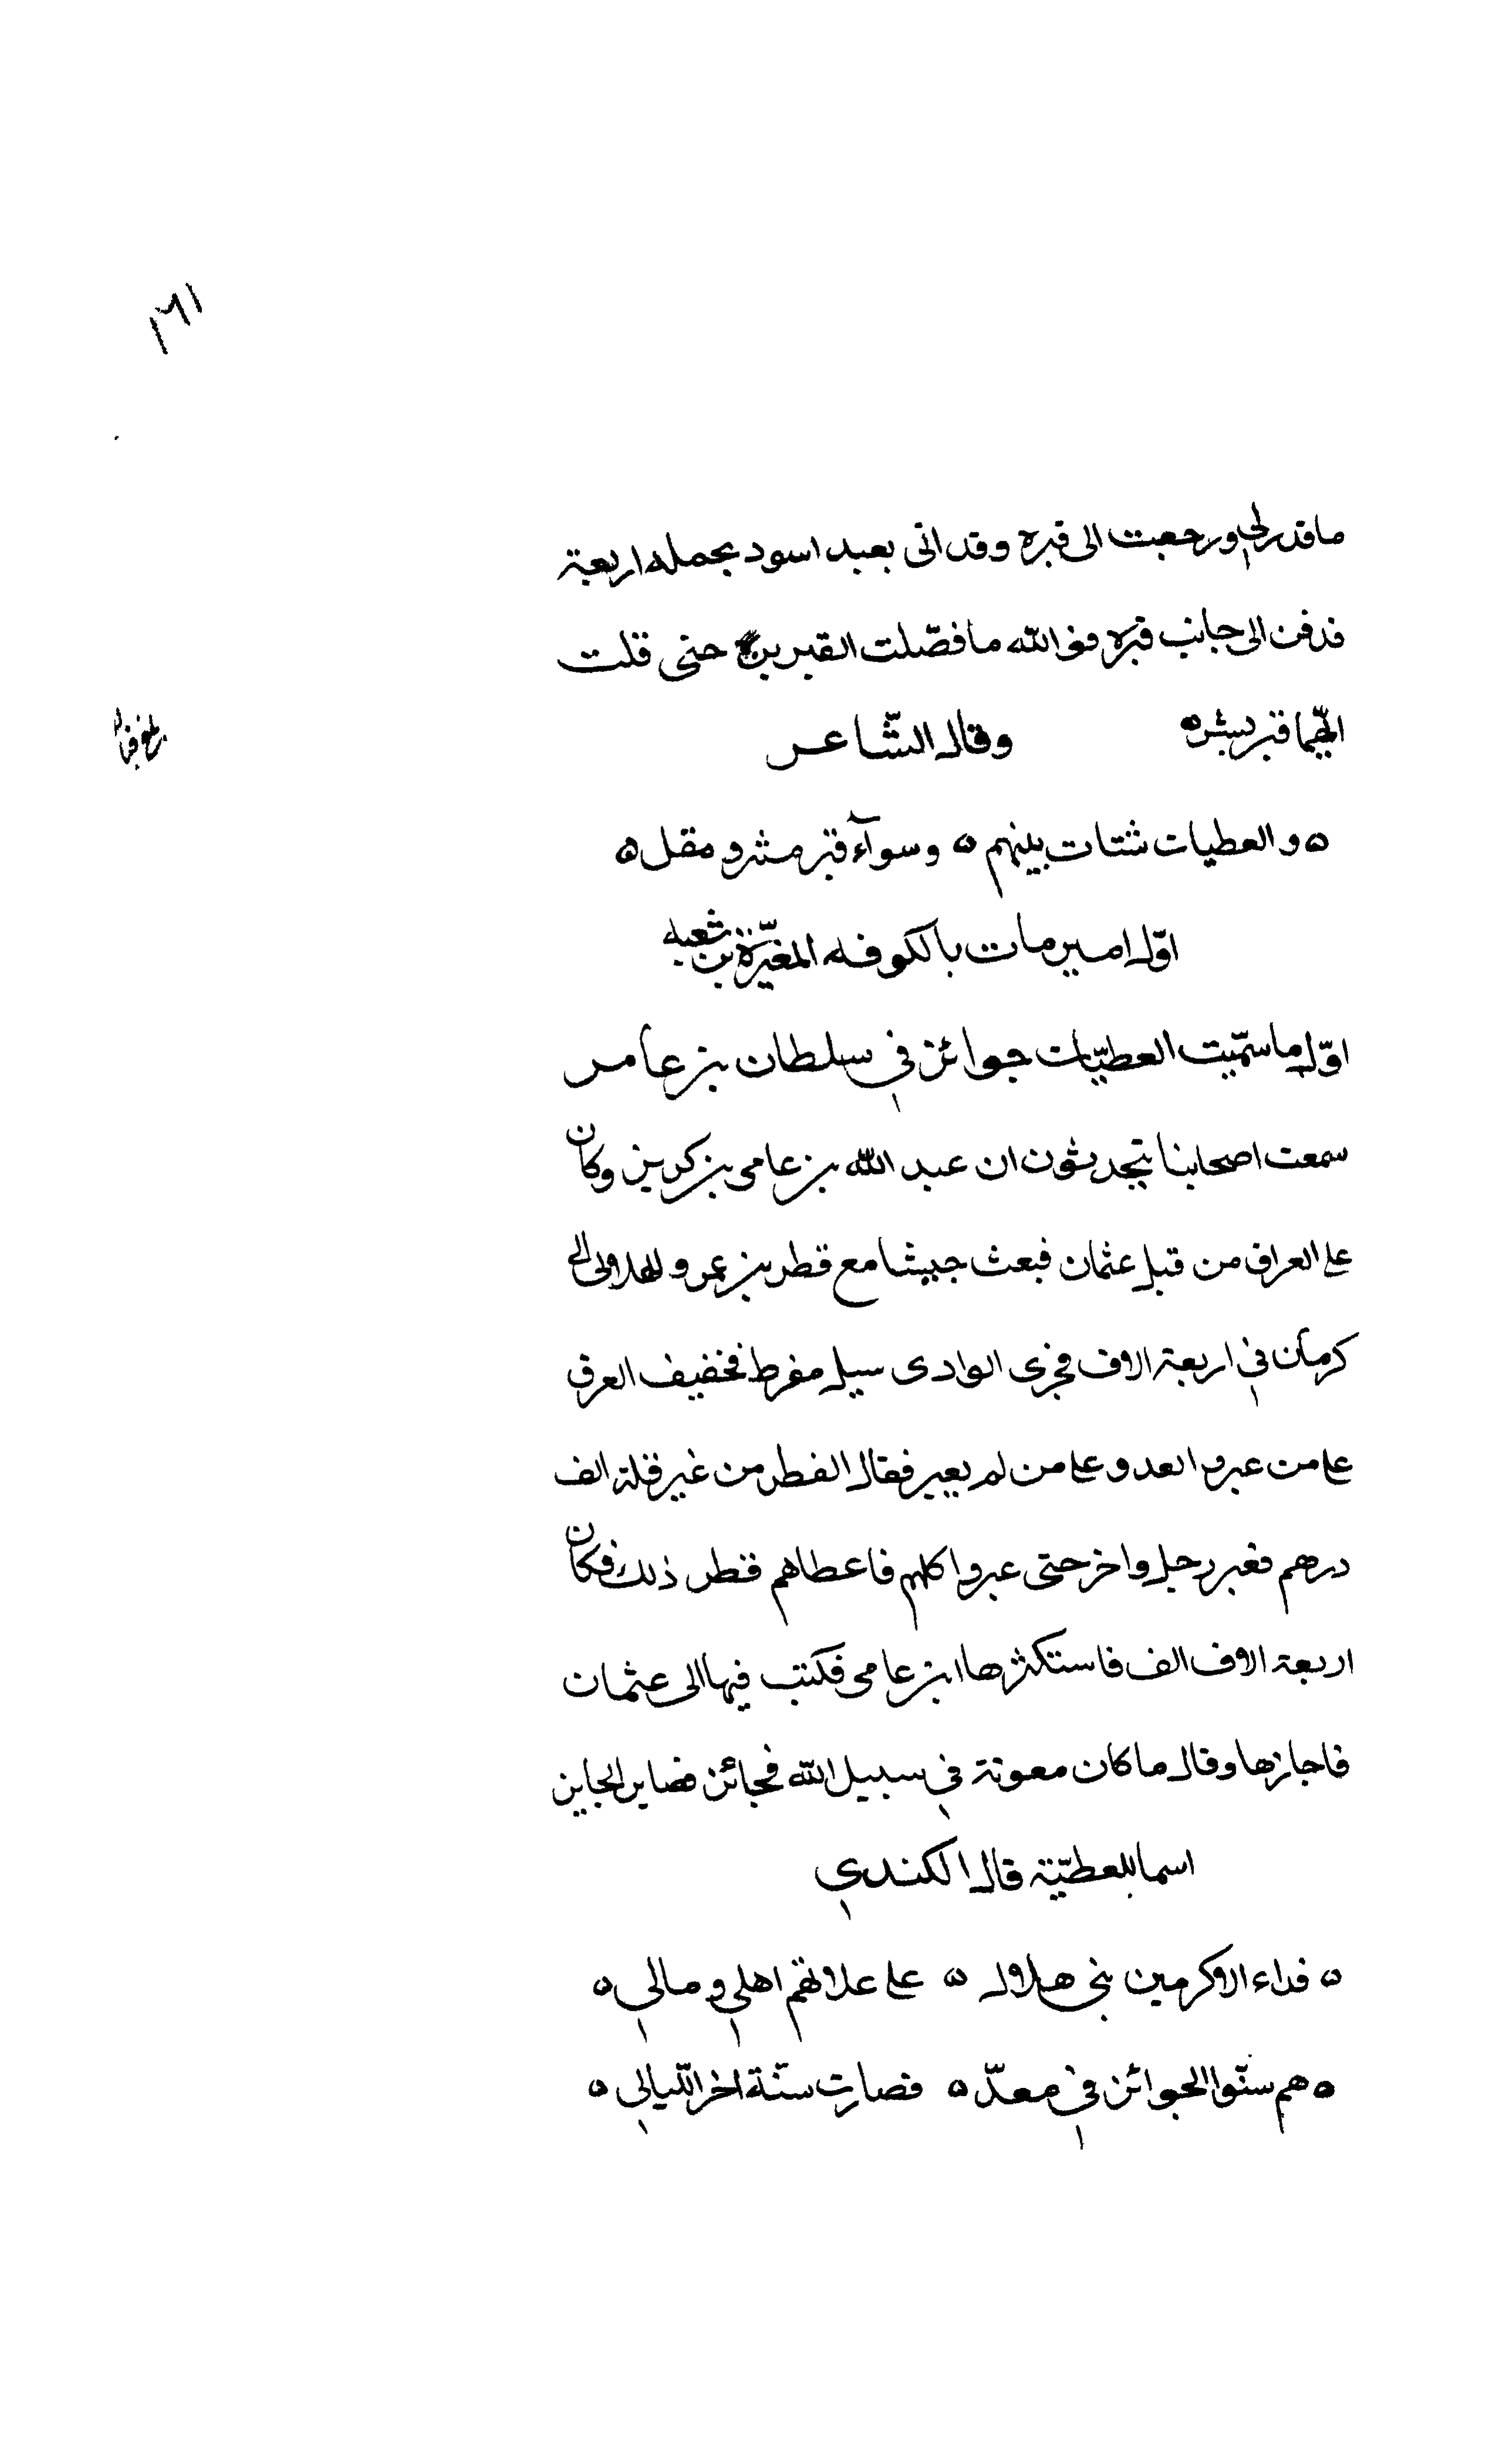 ١٦١
ما قدر لي ورجعت الى قبره وقد اتى بعبد اسود يحمله اربعة
فدفن الى جانب قبره فوالله ما فصّلت القبرين حتى قلت
ايّهما قبر بشر ه وقال الشّاعر
ه والعطيات شتات بينهم ه وسوآء قبر مثر ومقل ه
اوّل امير مات بالكوفه المغيّرة بن شعبه
اوّل ما سمّيت العطيّات جوائز في سلطان بن عامر
سمعت اصحابنا يتحدثون ان عبد الله بن عامر بن كريز وكان
على العراق من قبل عثمان فبعث جيشا مع قطن بن عمرو الهلالى الى
كرمان في اربعة الاف فجرى الوادى سيل مفرط فخفيف العرق
على من عبر والعدو على من لم يعبر فقال الفطن من غير قلة الف
درهم فعبر رجل واخر حتى عبروا كلهم فاعطاهم قطن ذلك فكان
اربعة الاف الف فاستكثرها ابن عامر فكتب فيها الى عثمان
فاجازها وقال ما كان معونة في سبيل الله فجائز فصاير الجايز
اسما للعطيّة قال الكندي
ه فداء الاكرمين بني هلال ه على علاتهم اهلي ومالي ه
ه هم سنّوا الجوائز في معدّ ه فصارت سنّة اخر اللّيالي ه